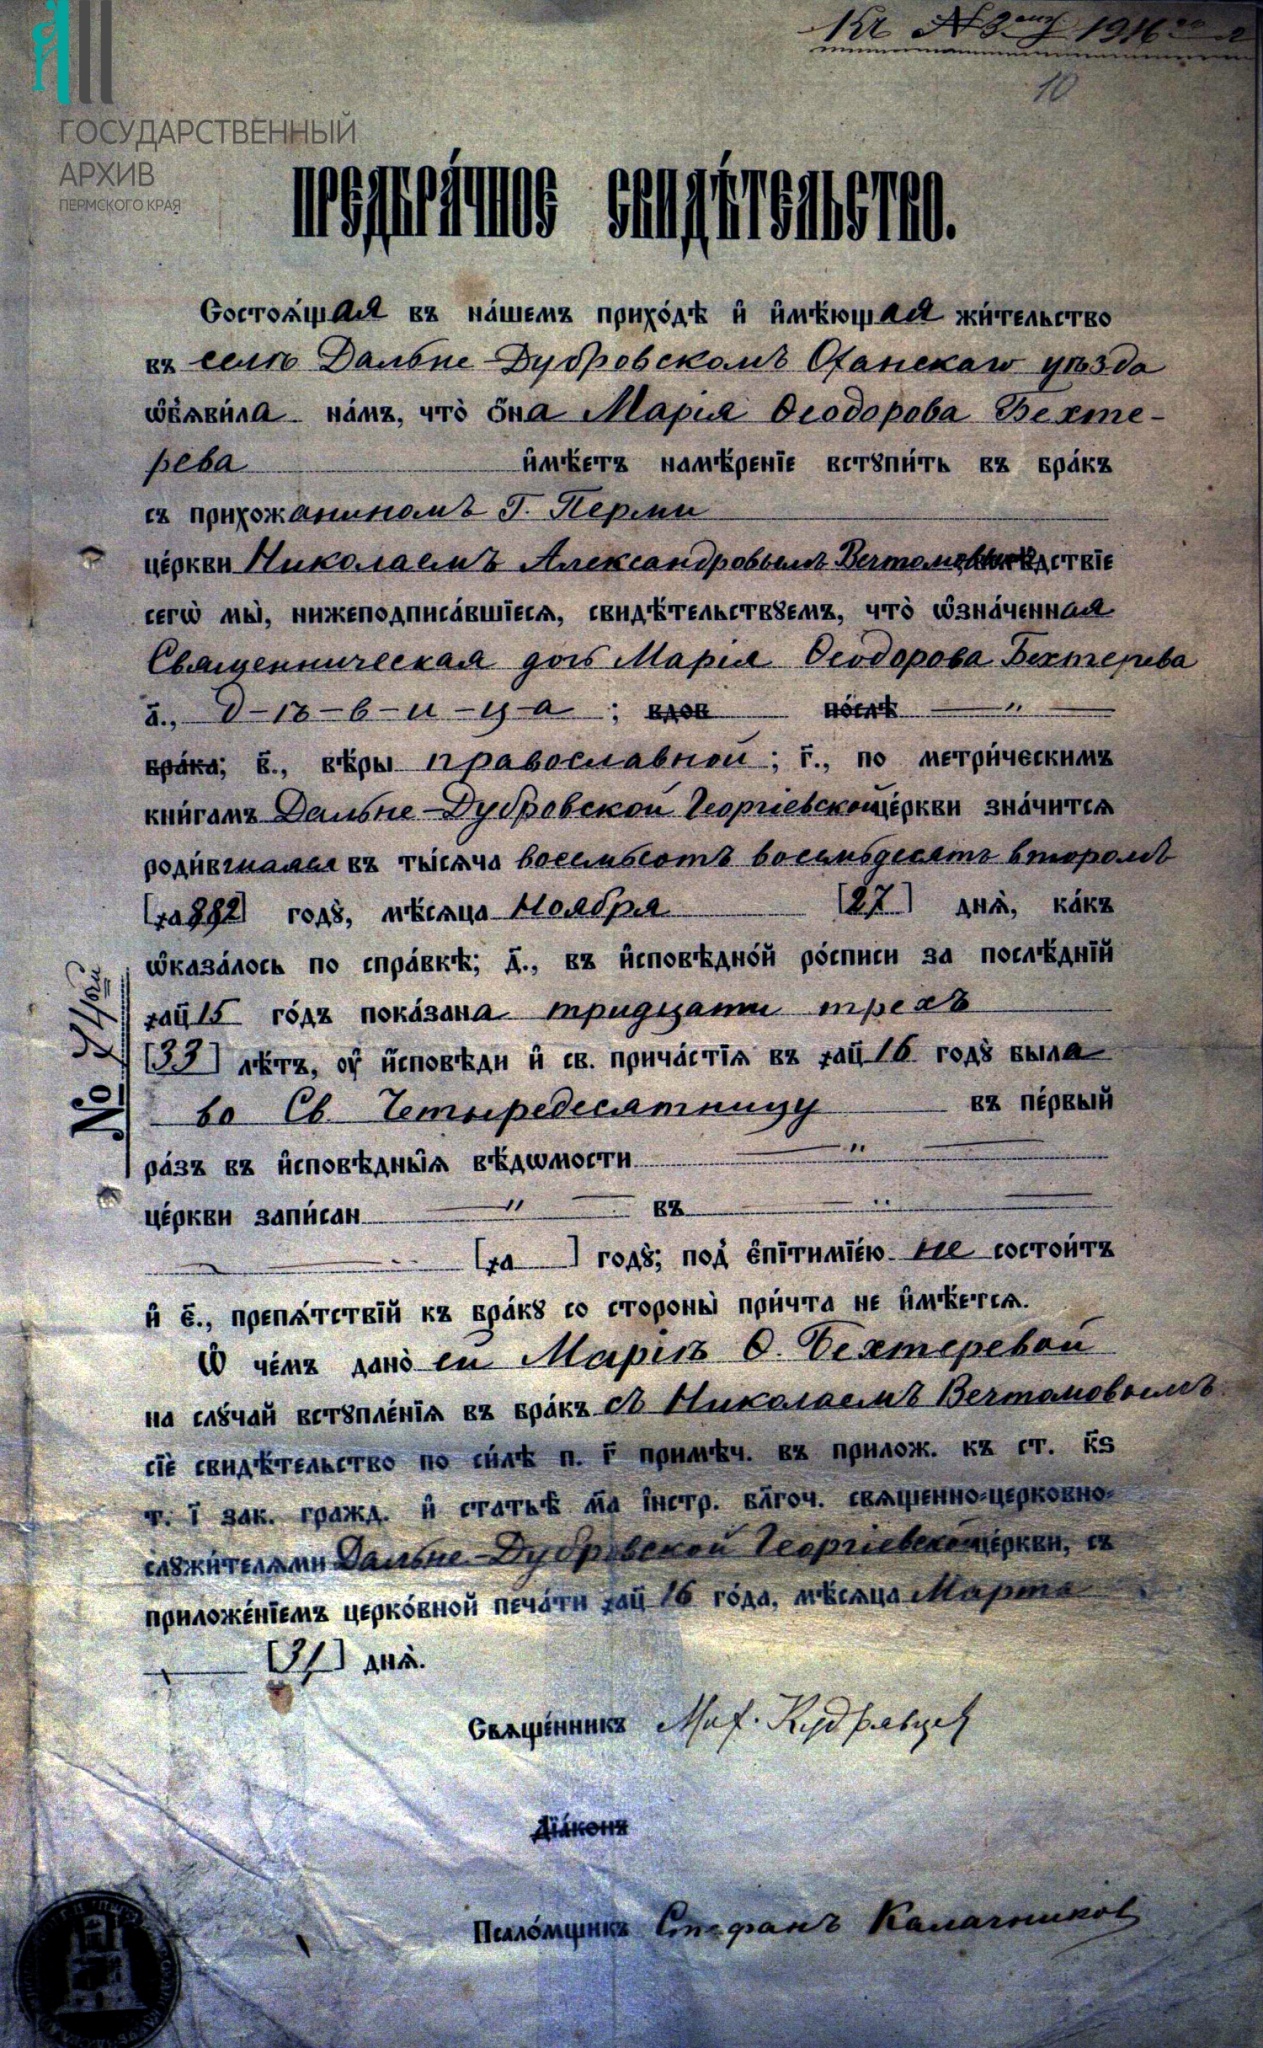 Къ №3 1916
10
ГОСУДАРСТВЕННЫЙ
АРХИВ
ПЕРМСКОГО КРАЯ
ПРЕДБРА́ЧНОЕ СВИДѢ́ТЕЛЬСТВО.
Состоѧ́щая въ на́шемъ прихо́дѣ и҆ и҆мѣ́ющая жи́тельство
въ селѣ Дальне-Дубровскомъ Оханскаго уѣзда
ѡ҆бъѧви́ла на́мъ, что̀ о҆на Марія Ѳеодорова Бехте-
рева и҆мѣ́етъ намѣ́реніе вступи́ть въ бра́къ
съ прихожаниномъ Г. Перми
це́ркви Николаемъ Александровымъ Вечтомовымъ дствіе
сегѡ̀ мы̀, нижеподписа́вшіесѧ, свидѣ́тельствꙋемъ, что̀ ѡ҆зна́ченная
Священническая дочь Марія Ѳеодорова Бехтерева
а҃., д-ѣ-в-и-ц-а ; вдов по́слѣ "
бра́ка; в҃., вѣ́ры православной ; г҃., по метри́ческимъ
кни́гамъ Дальне-Дубровской Георгіевской це́ркви зна́читсѧ
роди́вшаяся въ ты́сѧча восемьсотъ восемьдесятъ второмъ
[҂а882] годꙋ̀, мѣ́сѧца Ноября [27] днѧ̀, ка́къ
ѡ҆каза́лось по спра́вкѣ; д҃., въ и҆сповѣ́дной ро́списи за послѣ́дній
҂ац҃15 го́дъ пока́зана тридцати трехъ
[33] лѣ́тъ, ᲂу҆ и҆́сповѣди и҆ св. прича́стіѧ въ ҂ац҃16 годꙋ̀ была
во Св. Четыредесятницу въ пе́рвый
ра́зъ въ и҆сповѣ́дныѧ вѣ́дѡмости "
це́ркви запи́сан " въ "
[҂а ] годꙋ̀; под̾ є҆пітиміе́ю не состои́тъ
и҆ є҃., препѧ́тствій къ бра́кꙋ со стороны̀ при́чта не и҆мѣ́етсѧ.
Ѡ҆ че́мъ дано̀ ей Маріи Ѳ. Бехтеревой
на слꙋ́чай встꙋпле́нія въ бра́къ съ Николаемъ Вечтомовымъ
сіѐ свидѣ́тельство по си́лѣ п. г҃ примѣч. въ прилож. къ ст. к҃ѕ
т. і҃ зак. гражд. и҆ статьѣ̀ м҃а і҆нстр. бл҃гоч. свѧщенно-церковно-
слꙋжи́телѧми Дальне-Дубровской Георгіевской це́ркви, съ
приложе́ніемъ церко́вной печа́ти ҂ац҃ 16 го́да, мѣ́сѧца Марта
[31] днѧ̀.
№ 74
Свѧще́нникъ Мих. Кудрявцев
Діа́конъ
Псало́мщикъ Стефанъ Калачников